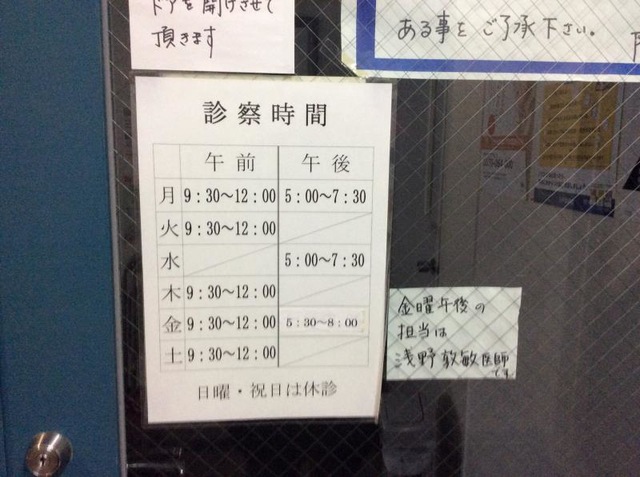 ドアを開けさせて
頂きます
ある事をご了承下さい。
診察時間
午前 午後
月 9:30～12:00 5:00～7:30
火 9:30～12:00
水 5:00～7:30
木 9:30～12:00
金 9:30～12:00 5:30～8:00
土 9:30～12:00
日曜・祝日は休診
金曜午後の
担当は
浅野敦敏医師
です